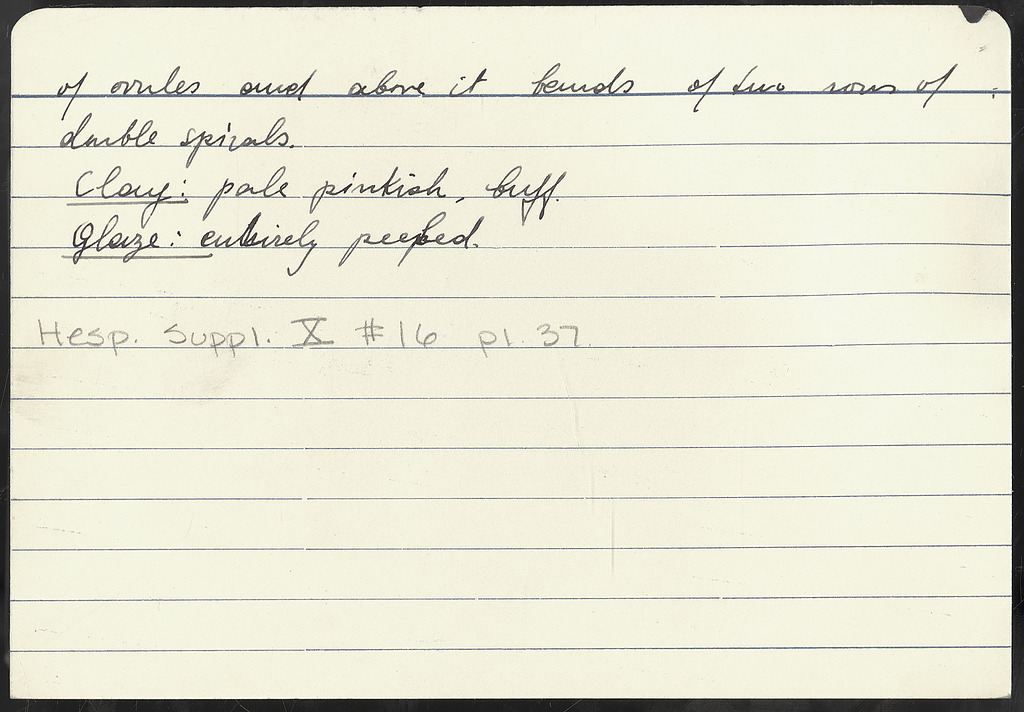 of ovules and above it bands of two rows of
double spirals.
Clay: pale pinkish, buff.
Glaze: entirely peeled.
Hesp. Suppl. X #16 pl. 37.